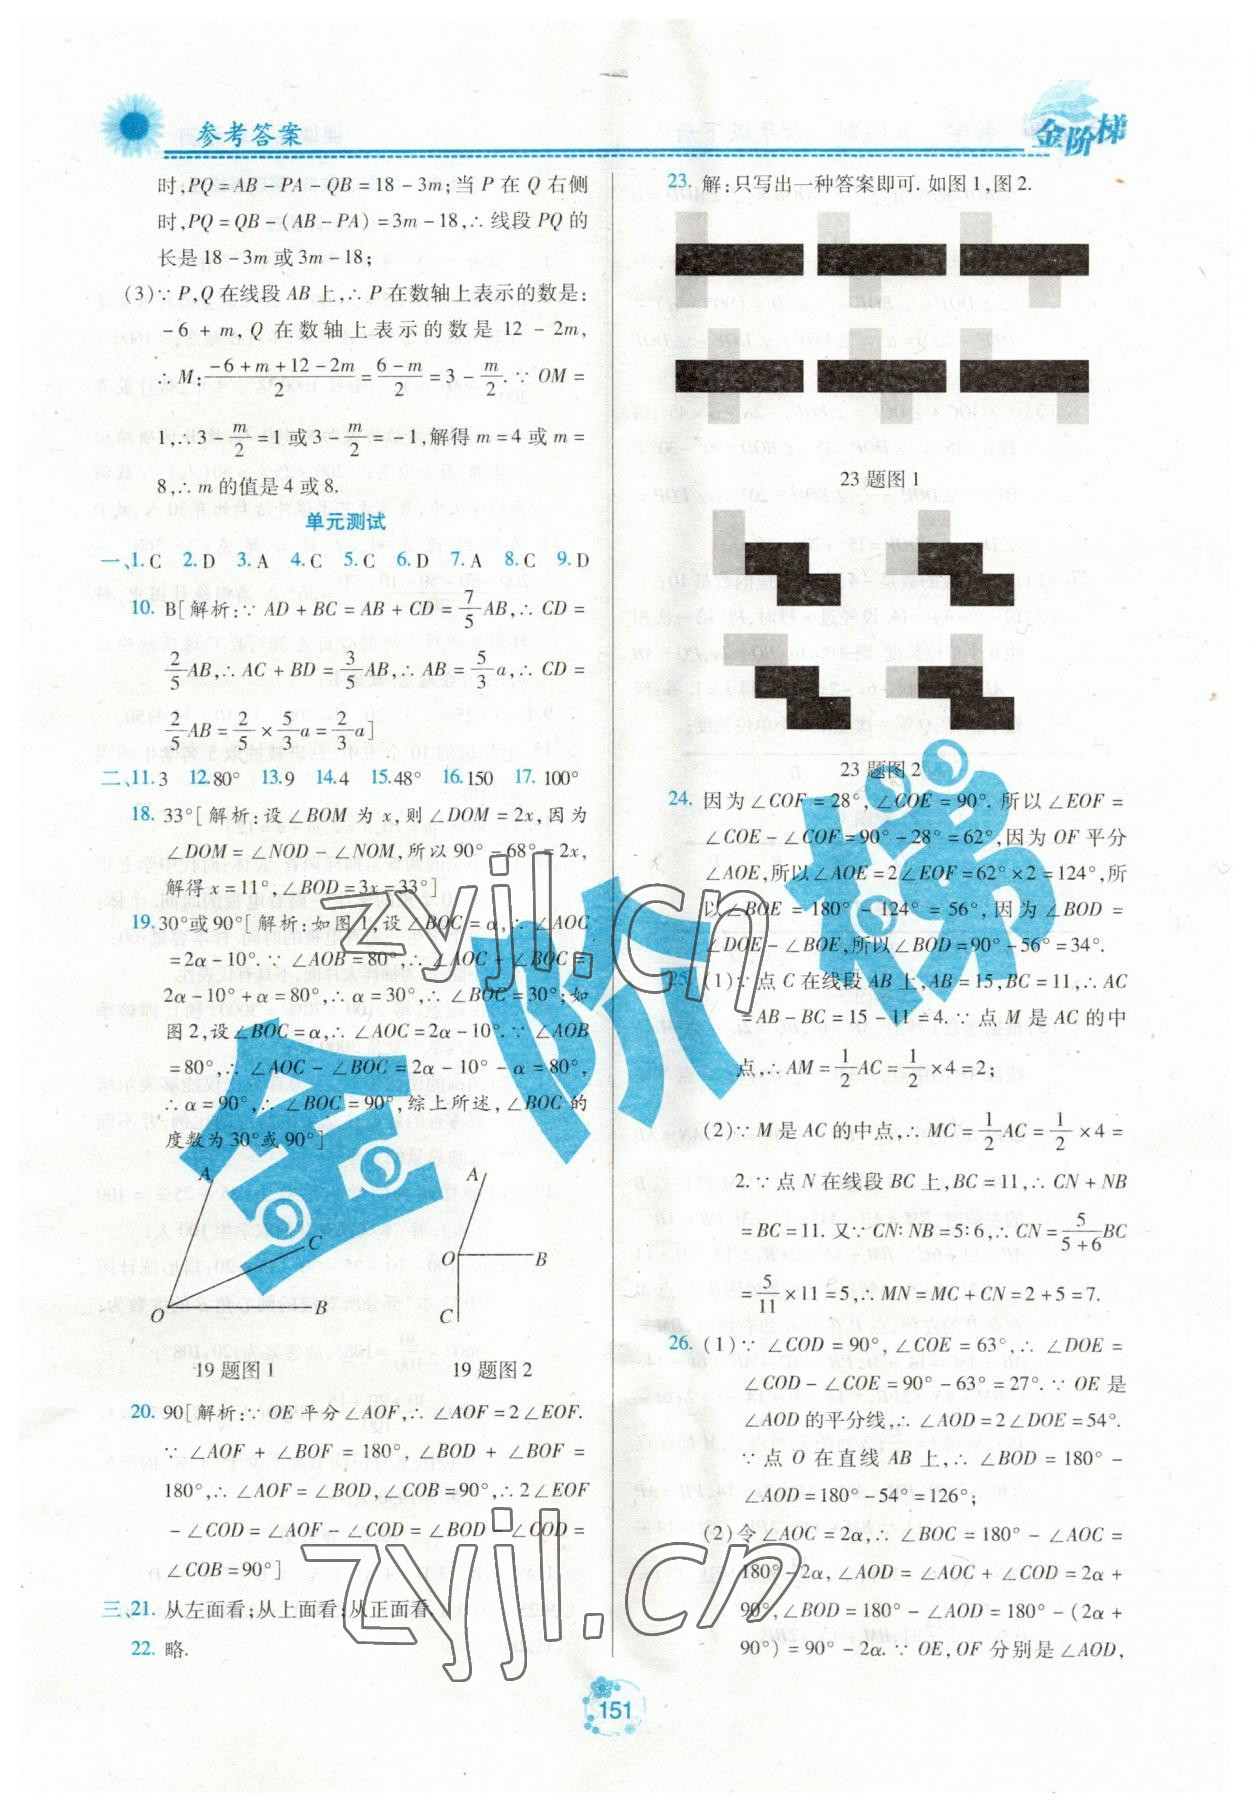 参考答案
金阶梯
时,PQ=AB-PA-QB=18-3m;当P在Q右侧
时,PQ=QB-(AB-PA)=3m-18,∴线段PQ的
长是18-3m或3m-18;
(3)∵P,Q在线段AB上,∴P在数轴上表示的数是:
-6+m,Q在数轴上表示的数是12-2m,
∴M:(-6+m+12-2m)/2=(6-m)/2=3-m/2.∵OM=
1,∴3-m/2=1或3-m/2=-1,解得m=4或m=
8,∴m的值是4或8.
单元测试
一、1.C 2.D 3.A 4.C 5.C 6.D 7.A 8.C 9.D
10. B[解析:∵AD+BC=AB+CD=7/5AB,∴CD=
2/5AB,∴AC+BD=3/5AB,∴AB=5/3a,∴CD=
2/5AB=2/5×5/3a=2/3a]
二、11.3 12.80° 13.9 14.4 15.48° 16.150 17.100°
18. 33°[解析:设∠BOM为x,则∠DOM=2x,因为
∠DOM=∠NOD-∠NOM,所以90°-68°=2x,
解得x=11°,∠BOD=3x=33°]
19. 30°或90°[解析:如图1,设∠BOC=α,∴∠AOC
=2α-10°.∵∠AOB=80°,∴∠AOC+∠BOC=
2α-10°+α=80°,∴α=30°,∴∠BOC=30°;如
图2,设∠BOC=α,∴∠AOC=2α-10°.∵∠AOB
=80°,∴∠AOC-∠BOC=2α-10°-α=80°,
∴α=90°,∴∠BOC=90°,综上所述,∠BOC的
度数为30°或90°]
A
C
O
B
A
O
B
C
19题图1 19题图2
20. 90[解析:∵OE平分∠AOF,∴∠AOF=2∠EOF.
∵∠AOF+∠BOF=180°,∠BOD+∠BOF=
180°,∴∠AOF=∠BOD,∠COB=90°,∴2∠EOF
-∠COD=∠AOF-∠COD=∠BOD-∠COD=
∠COB=90°]
三、21. 从左面看;从上面看;从正面看.
22. 略.
23. 解:只写出一种答案即可.如图1,图2.
23题图1
23题图2
24. 因为∠COF=28°,∠COE=90°.所以∠EOF=
∠COE-∠COF=90°-28°=62°,因为OF平分
∠AOE,所以∠AOE=2∠EOF=62°×2=124°,所
以∠BOE=180°-124°=56°,因为∠BOD=
∠DOE-∠BOE,所以∠BOD=90°-56°=34°.
25. (1)∵点C在线段AB上,AB=15,BC=11,∴AC
=AB-BC=15-11=4.∵点M是AC的中
点,∴AM=1/2AC=1/2×4=2;
(2)∵M是AC的中点,∴MC=1/2AC=1/2×4=
2.∵点N在线段BC上,BC=11,∴CN+NB
=BC=11.又∵CN:NB=5:6,∴CN=5/(5+6)BC
=5/11×11=5,∴MN=MC+CN=2+5=7.
26. (1)∵∠COD=90°,∠COE=63°,∴∠DOE=
∠COD-∠COE=90°-63°=27°.∵OE是
∠AOD的平分线,∴∠AOD=2∠DOE=54°.
∵点O在直线AB上,∴∠BOD=180°-
∠AOD=180°-54°=126°;
(2)令∠AOC=2α,∴∠BOC=180°-∠AOC=
180°-2α,∠AOD=∠AOC+∠COD=2α+
90°,∠BOD=180°-∠AOD=180°-(2α+
90°)=90°-2α.∵OE,OF分别是∠AOD,
151
金阶梯
zyjl.cn
zyjl.cn